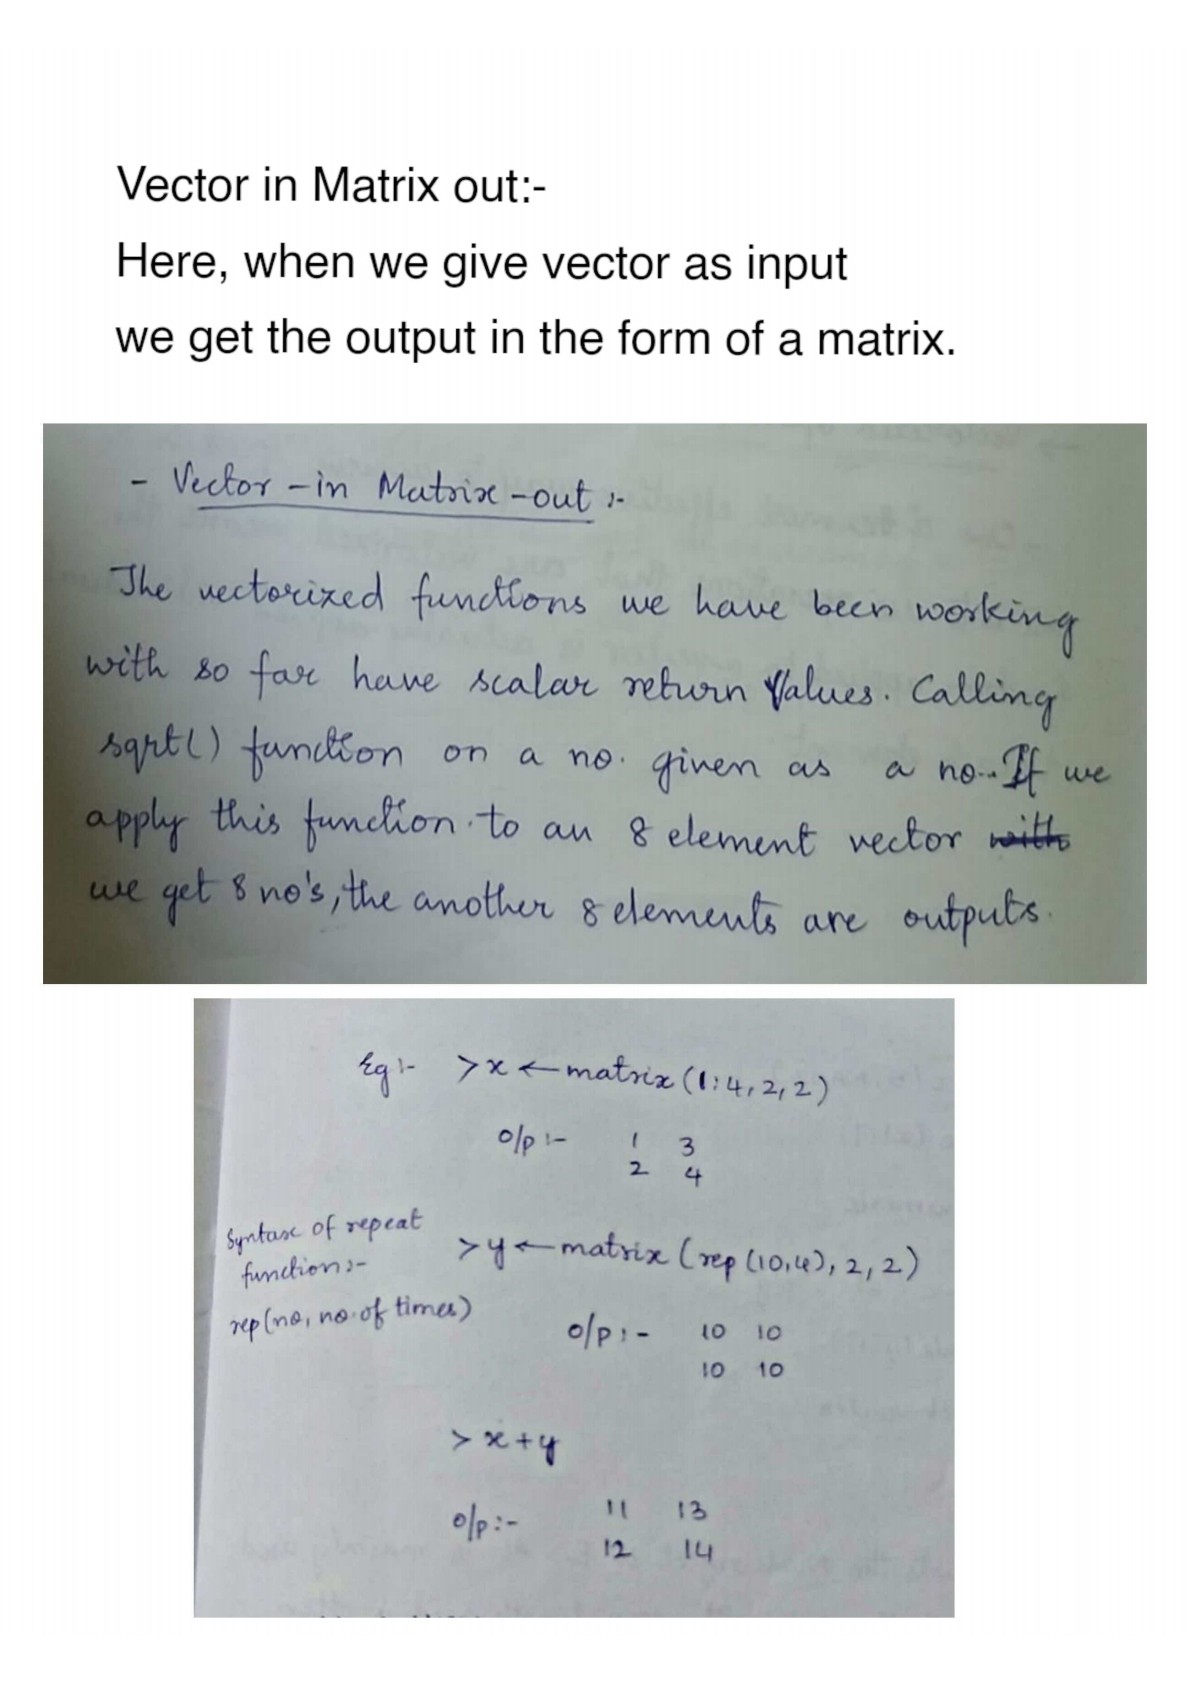 Vector in Matrix out:-
Here, when we give vector as input
we get the output in the form of a matrix.
- Vector-in Matrix-out :-
The vectorized functions we have been working
with so far have scalar return values. Calling
sqrt() function on a no. given as a no.. If we
apply this function to an 8 element vector with
we get 8 no's, the another 8 elements are outputs.
Eg:- >x ← matrix (1:4, 2, 2)
o/p :- 1 3
2 4
Syntax of repeat
function:-
rep(no, no. of times)
>y ← matrix (rep (10,4), 2, 2)
o/p :- 10 10
10 10
> x+y
o/p :- 11 13
12 14